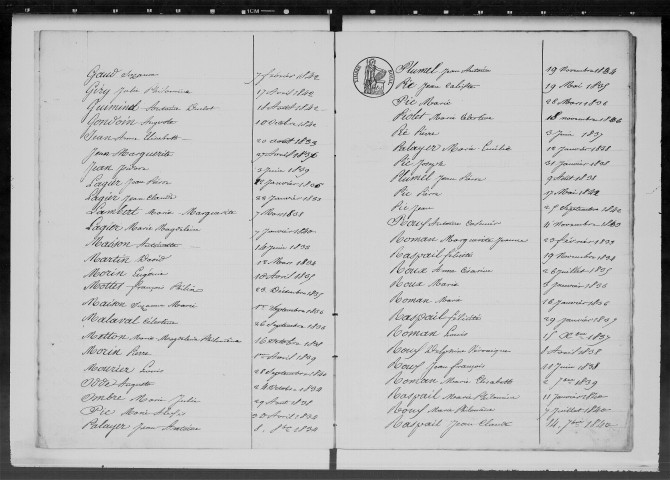 Gaud Suzanne 7 février 1842
Géry Julie Philomène 17 Avril 1842
Guimind Antoine 18 Août 1842
Gondoin Auguste 10 Octobre 1842
Jean Anne Elisabeth 20 août 1833
Jean Marguerite 27 Avril 1836
Jean Pierre 2 juin 1849
Lagier Jean Pierre janvier 1836
Lagier Jean Claude 22 janvier 1831
Lambert Marie Marguerite 7 Mars 1838
Lagier Marie Magdeleine 7 janvier 1840
Masson Antoinette 14 juin 1834
Martin David 12 Mars 1834
Morin Eugène 18 Avril 1835
Mottet François 23 Décembre 1835
Maison Suzanne Marie 1er Septembre 1836
Malaval Célestine 26 Septembre 1836
Motton Marie Magdeleine Philomène 16 Octobre 1838
Morin Pierre 1er Avril 1839
Mourier Louis 28 Septembre 1840
Odde Auguste 24 Octobre 1834
Ombre Marie Julie 29 Août 1838
Pic Marie 20 Avril 1834
Palayer Jean Antoine 8 8bre 1834
Plumel Jean Antoine 19 Novembre 1834
Pic Jean Calixte 19 Mai 1835
Pic Marie 26 Mars 1836
Piolet Marie Célestine 18 novembre 1836
Pic Pierre 2 juin 1837
Palayer Marie Emilie 12 janvier 1838
Pic Joseph 21 janvier 1838
Plumel Jean Pierre 9 Août 1838
Pic Pierre 17 Mai 1842
Pic Jean 27 Septembre 1842
Roux Antoine Casimir 11 novembre 1843
Roman Marguerite Jeanne 23 février 1833
Raspail félicité 19 Novembre 1834
Roux Anne 26 juillet 1835
Roux Marie 8 janvier 1836
Roman Marie 16 janvier 1836
Raspail félicité 29 janvier 1837
Roman Louis 15 Xbre 1837
Roux Delphine Véronique 8 Avril 1838
Roux Jean françois 11 juin 1838
Roman Marie Elisabeth 2 7bre 1839
Raspail Marie Philomène 11 janvier 1840
Roux Marie Philomène 7 juillet 1840
Raspail Jean Claude 14 7bre 1840